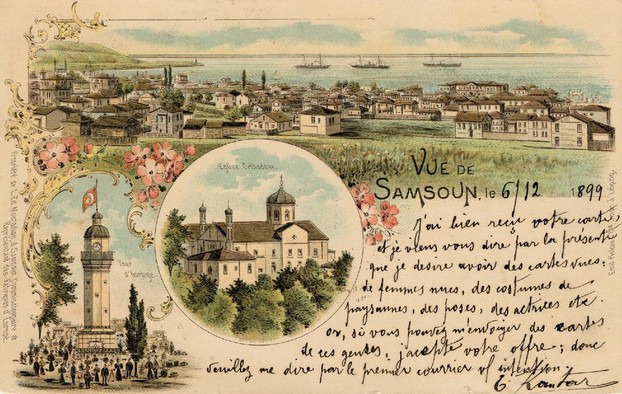 VUE DE
SAMSOUN, le 6/12 1899
Eglise Orthodoxe.
Tour d'horloge.
J'ai bien reçu votre carte,
et je viens vous dire par la présente
que je desire avoir des cartes vues.
de femmes nues, des costumes de
paysannes, des poses, des actrices etc
or, si vous pouvez m'envoyer des cartes
de ces genres, j'accepte votre offre; donc
veuillez me dire par le premier courrier vs intention.